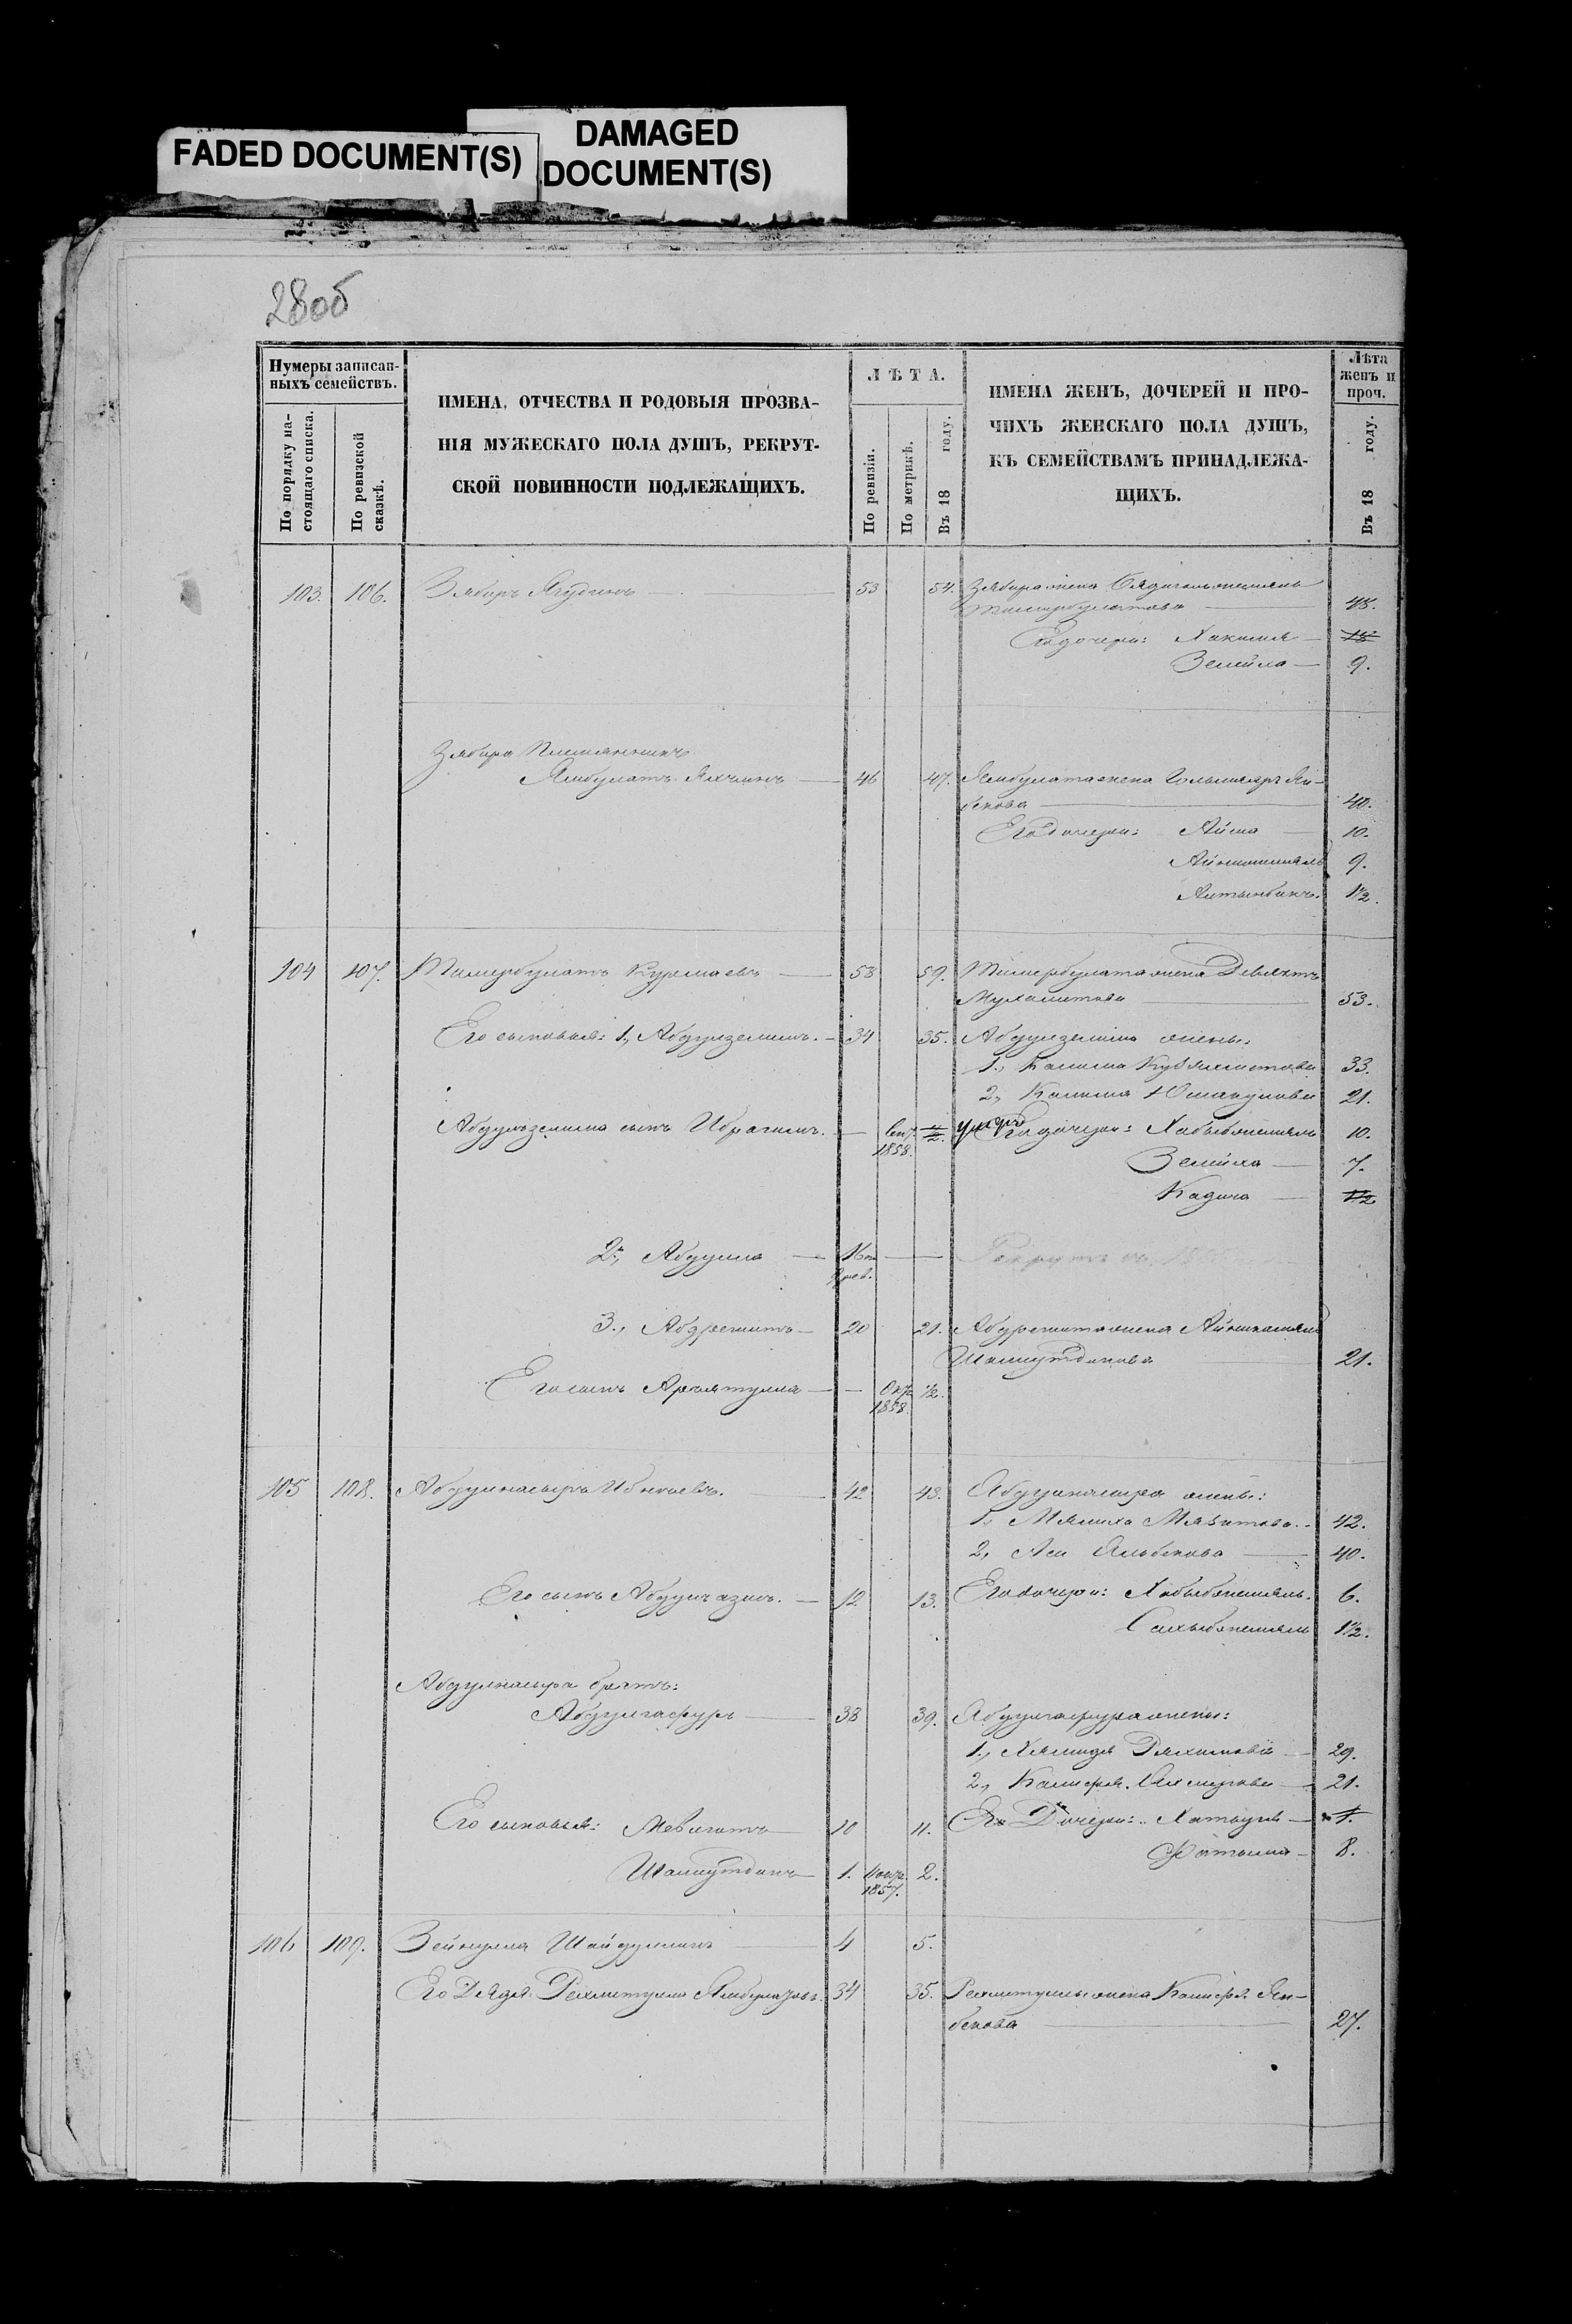 FADED DOCUMENT(S)
DAMAGED
DOCUMENT(S)
28об
Нумеры записан-
ныхъ семействъ.
По порядку на-
стоящаго списка.
По ревизской
сказкѣ.
ИМЕНА, ОТЧЕСТВА И РОДОВЫЯ ПРОЗВА-
НІЯ МУЖЕСКАГО ПОЛА ДУШЪ, РЕКРУТ-
СКОЙ ПОВИННОСТИ ПОДЛЕЖАЩИХЪ.
ЛѢТА.
По ревизіи.
По метрикѣ.
Въ 18 году.
ИМЕНА ЖЕНЪ, ДОЧЕРЕЙ И ПРО-
ЧИХЪ ЖЕНСКАГО ПОЛА ДУШЪ,
КЪ СЕМЕЙСТВАМЪ ПРИНАДЛЕЖА-
ЩИХЪ.
Лѣта
женъ и
проч.
Въ 18 году.
103. 106. Зябиръ Ягудинъ 53 54. Зябира жена
Тимербулатова 48.
Его дочери: Хакимя 18
Земйла 9.
Зябира Племянникъ
Ямбулатъ Яхчинъ 46 47. Ямбулата жена Ян-
бекова 40.
Его дочери: Айша 10.
9.
Алтынбикъ. 1½.
104 107. Тимербулатъ Курмаевъ 58 59. Тимербулата жена Девлятъ
Мухаметова 53.
Его сыновья: 1, Абдулзелилъ. 34 35. Абдулзелила жены:
1., Калима 33.
2, Калима Юмакулова 21.
Абдулзелила сынъ Ибрагимъ. Сент. ½. умеръ Его дочери: Хабыбжемялъ 10.
1858.
Земйла 7.
Кадича 1½
2, Абдулла 16 Рекрутъ
3., Абдрешитъ 20 21. Абдрешита жена
Шамсутдинова 21.
Его сынъ Арслятулла Окт. ½.
1858.
105 108. Абдулнасыръ 42 43. Абдулнасыра жены:
1., Мялиха Мязитова 42.
2, Аси Альбекова 40.
Его сынъ Абдулгазизъ. 12 13. Его дочери: Хабыбжемялъ. 6.
Сахыбжемялъ 1½.
Абдулнасыра братъ:
Абдулгафуръ 38 39. Абдулгафура жены:
1., Хямидя Ряхимова 29.
2., Калифя. 21.
Его сыновья: Мевлютъ 10 11. Его Дочери:
Фатыма 8.
Шамсутдинъ 1. Нояб. 2.
1857.
106 109. Зейнулла Шайдуллинъ 4 5.
Его Дядя Рехметулла Ямбулатовъ. 34 35. Рехметуллы жена Калифя Ян-
бекова 27.